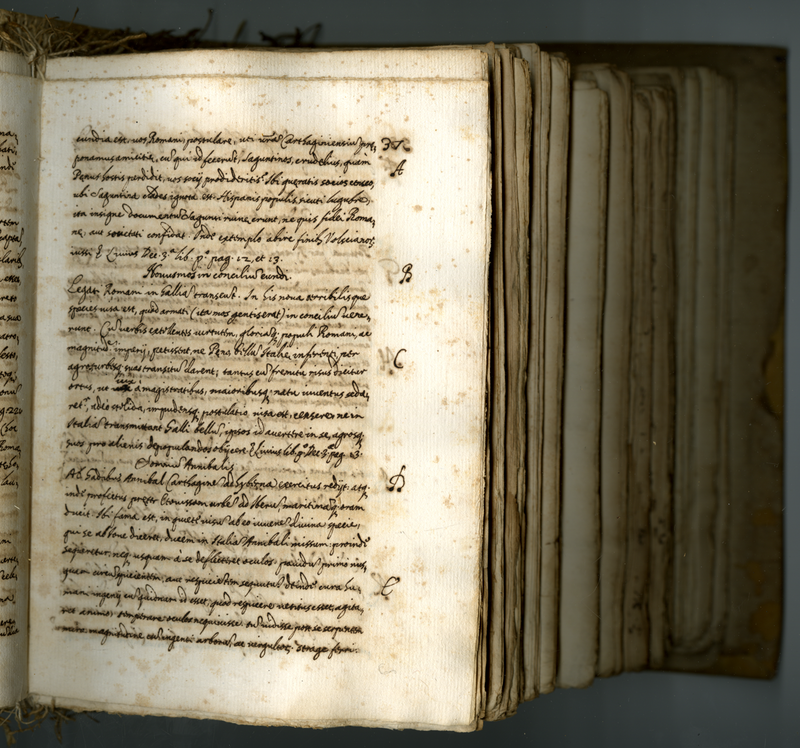 eundia est, vos Romani, postulare, uti vrā Carthaginiensiū prę 37.
ponamus amicitię, cū qui id fecerūt, Saguntinos, crudelius, quam A
Penus hostis perdidit, vos socij prodideritis. Ibi quęratis socios censeo,
ubi Saguntina clades ignota est. Hispanis populis, sicuti lugubre,
ita insigne documentū Sagunti ruinę erunt, ne quis fidei Roma,
nę, aut societati confidat. Indè extemplo abire finibs Volscianor̄
iussi & Livius Dec. 3.ª lib. p.º pag. 12, et 13.
in conciliū eundi. B
Legati Romani in Galliā transeūt. In his nova terribilisque
species visa est, quod armati (ita mos gentis erat) in conciliū vene,
runt. Cū verbis extollentes virtutem, gloriāq; populi Romani, ac
magnitudinē imperij, petissent, ne Pęno bellū Italię inferenti per C
agros urbesq; suas transitū darent; tantus cū fremitu risus dicitur
ortus, ut vix à magistratibus, maioribusq; natu iuventus seda,
retr, adeò stolida, impudensq; postulatio visa est, censere, ne in
Italiā transmittant Galli bellū, ipsos id avertere in se, agrosq;
suos pro alienis depopulandos obijcere & Livius lib. p.º Dec. 3.ª pag. 13.
Somniū Annibalis.
Ab Gadibus Annibal Carthaginē ad hyberna exercitus redijt, atq; D
indè profectus pręter Etovissam urbē ad Iberū maritimāq; oram
ducit. Ibi fama est, in quiete visū ab eo iuvenē divina specie,
qui se ab Iove diceret, ducem in Italiā Annibali missum; proindè
sequeretur, neq; usquam à se deflecteret oculos. pavidū primò nus,
quam circūspicientem, aut respicientem sequutū; deindè cura hu, E
mani ingenij cū quidnam id esset, quod respicere vetitus esset, agita,
ret animo, temperare oculis nequivisse. tū vidisse post se serpentem
mira magnitudine, cū ingenti arborū, ac virgultor̄ strage ferri.